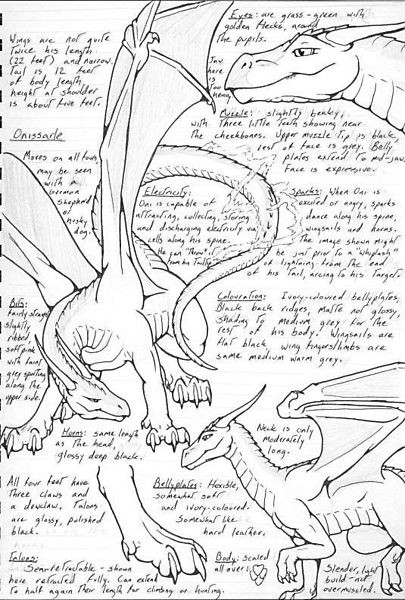 Wings are not quite
twice his length.
(22 feet) and narrow.
Tail is 12 feet
of body length
height at shoulder
is about five feet.
Eyes: are grass-green with
golden flecks, around
the pupils.
Muzzle: slightly beaky,
with three little teeth showing near
the cheekbones. Upper muzzle tip is black,
rest of face is grey. Belly
plates extend to mid-jaw.
Face is expressive.
Onissarle
Moves on all fours,
may be seen
with
German
shepherd
or
husky
dog.
Electricity:
Oni is capable of
attracting, collecting, storing
and discharging electricity via
cells along his spine.
He can "throw" it
from his Tailtip
Sparks: When Oni is
excited or angry, sparks
dance along his spine,
wingsails and horns.
The image shown might
be just prior to a "Whiplash"
of lightning from the end
of his Tail, arcing to his Target.
Colouration: Ivory-coloured bellyplates,
Black back ridges, matte not glossy,
shading to medium grey for the
rest of his body. Wingsails are
flat black, wing fingers/limbs are
same medium warm grey.
fairly straight
slightly
ribbed
soft pink
with faint
grey spotting
along the
upper side.
Horns: same length
as the head,
glossy deep black.
Neck is only
moderately
long.
All four feet have
three claws and
a dewclaw. Talons
are glossy, polished
black.
Bellyplates: flexible,
somewhat soft
and ivory-coloured.
Somewhat like
hard leather.
Talons:
Semi-retractable - shown
here retracted fully. Can extend
to half again their length for climbing or hunting.
Body: scaled
all over.
Slender, light
build - not
overmuscled.